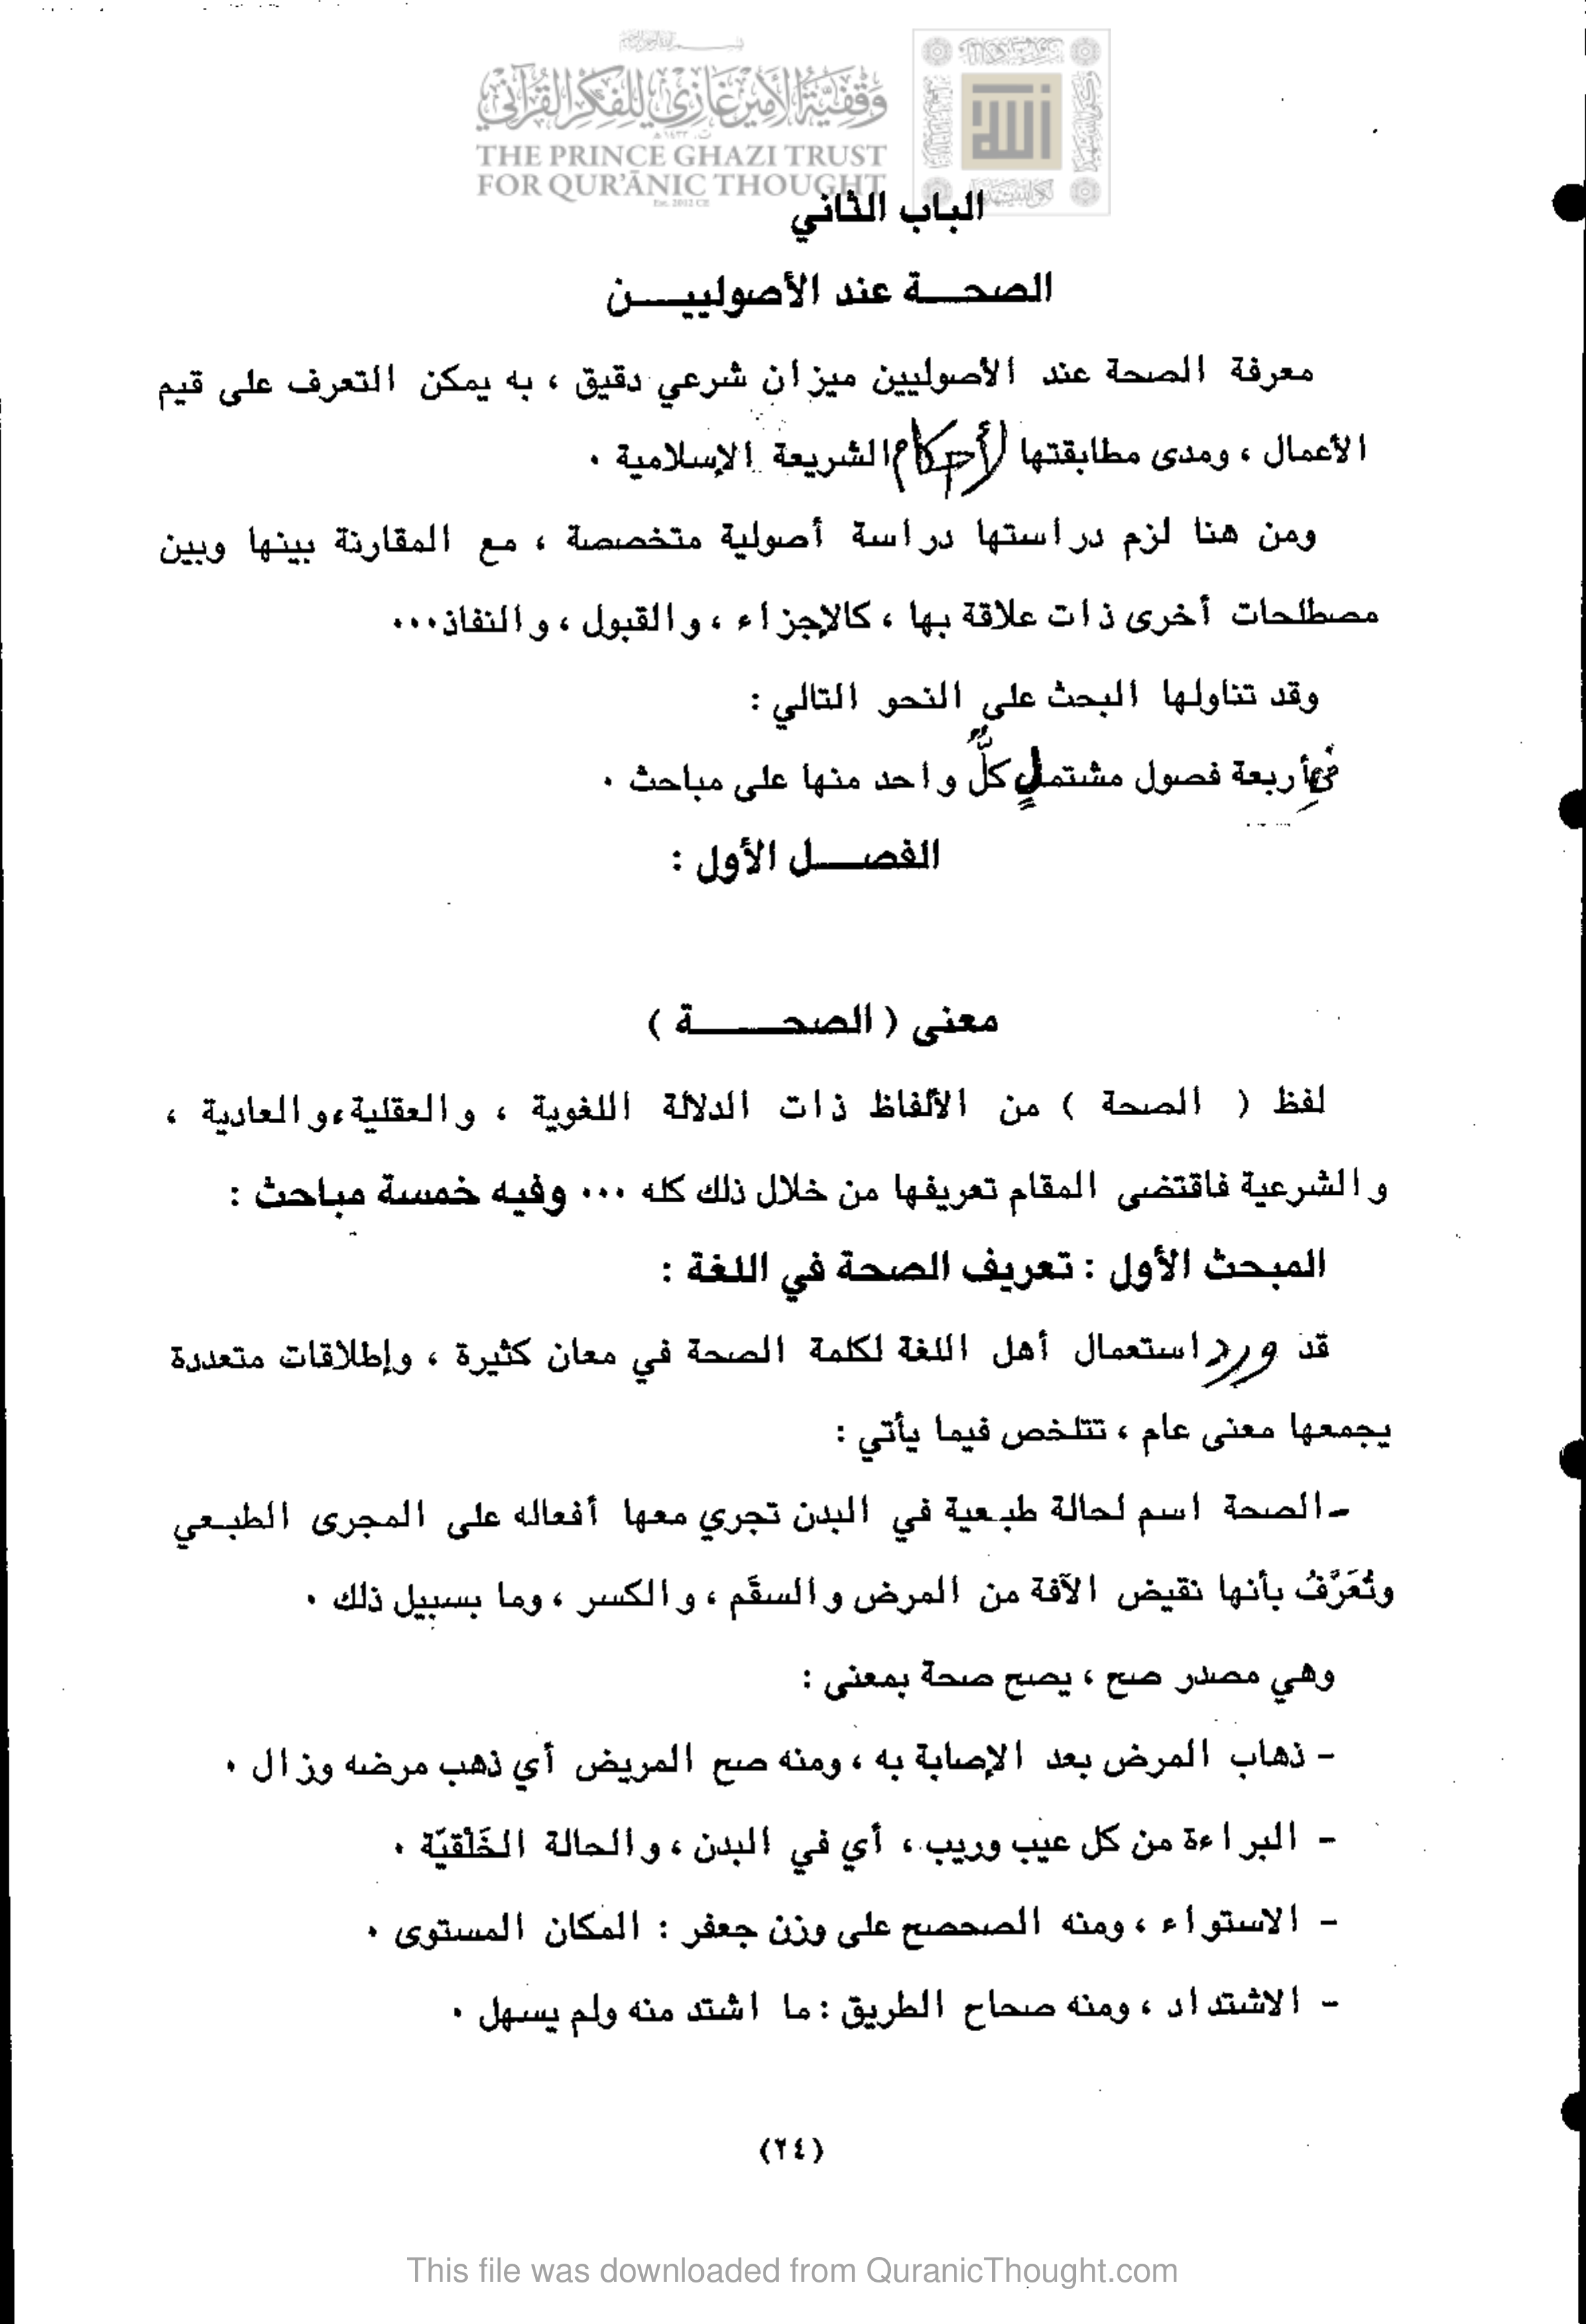 وقفية الأمير غازي للفكر القرآني
THE PRINCE GHAZI TRUST
FOR QUR'ĀNIC THOUGHT
Est. 2012 CE
الباب الثاني
الصحـــة عند الأصولييـــن
معرفة الصحة عند الأصوليين ميزان شرعي دقيق ، به يمكن التعرف على قيم
الأعمال ، ومدى مطابقتها لأحكام الشريعة الإسلامية ٠
ومن هنا لزم دراستها دراسة أصولية متخصصة ، مع المقارنة بينها وبين
مصطلحات أخرى ذات علاقة بها ، كالإجزاء ، والقبول ، والنفاذ٠٠٠
وقد تناولها البحث على النحو التالي :
في أربعة فصول مشتملٍ كلُّ واحد منها على مباحث ٠
الفصـــل الأول :
معنى ( الصحــــــة )
لفظ ( الصحة ) من الألفاظ ذات الدلالة اللغوية ، والعقلية،والعادية ،
والشرعية فاقتضى المقام تعريفها من خلال ذلك كله ٠٠٠ وفيه خمسة مباحث :
المبحث الأول : تعريف الصحة في اللغة :
قد ورد استعمال أهل اللغة لكلمة الصحة في معان كثيرة ، وإطلاقات متعددة
يجمعها معنى عام ، تتلخص فيما يأتي :
-الصحة اسم لحالة طبعية في البدن تجري معها أفعاله على المجرى الطبعي
وتُعَرَّفُ بأنها نقيض الآفة من المرض والسقَم ، والكسر ، وما بسبيل ذلك ٠
وهي مصدر صح ، يصح صحة بمعنى :
- ذهاب المرض بعد الإصابة به ، ومنه صح المريض أي ذهب مرضه وزال ٠
- البراءة من كل عيب وريب ، أي في البدن ، والحالة الخَلْقيّة ٠
- الاستواء ، ومنه الصحصح على وزن جعفر : المكان المستوى ٠
- الاشتداد ، ومنه صحاح الطريق : ما اشتد منه ولم يسهل ٠
(٢٤)
This file was downloaded from QuranicThought.com